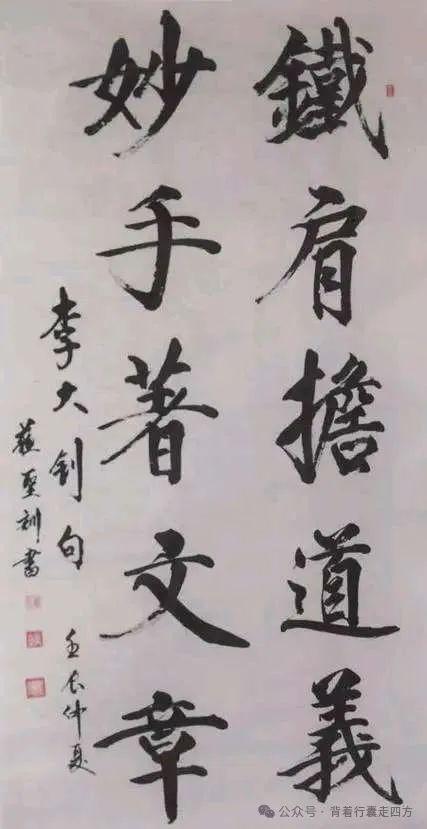 鐵肩擔道義
妙手著文章
李大釗句 壬辰仲夏
聖訓書
公众号 · 背着行囊走四方